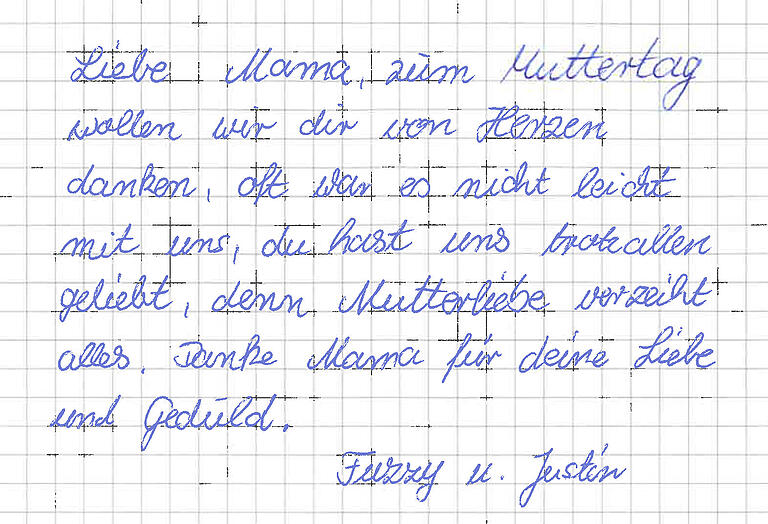 Liebe Mama, zum Muttertag
wollen wir dir von Herzen
danken, oft war es nicht leicht
mit uns, du hast uns trotzallen
geliebt, denn Mutterliebe verzeiht
alles. Danke Mama für deine Liebe
und Geduld.
Fuzzy u. Justin